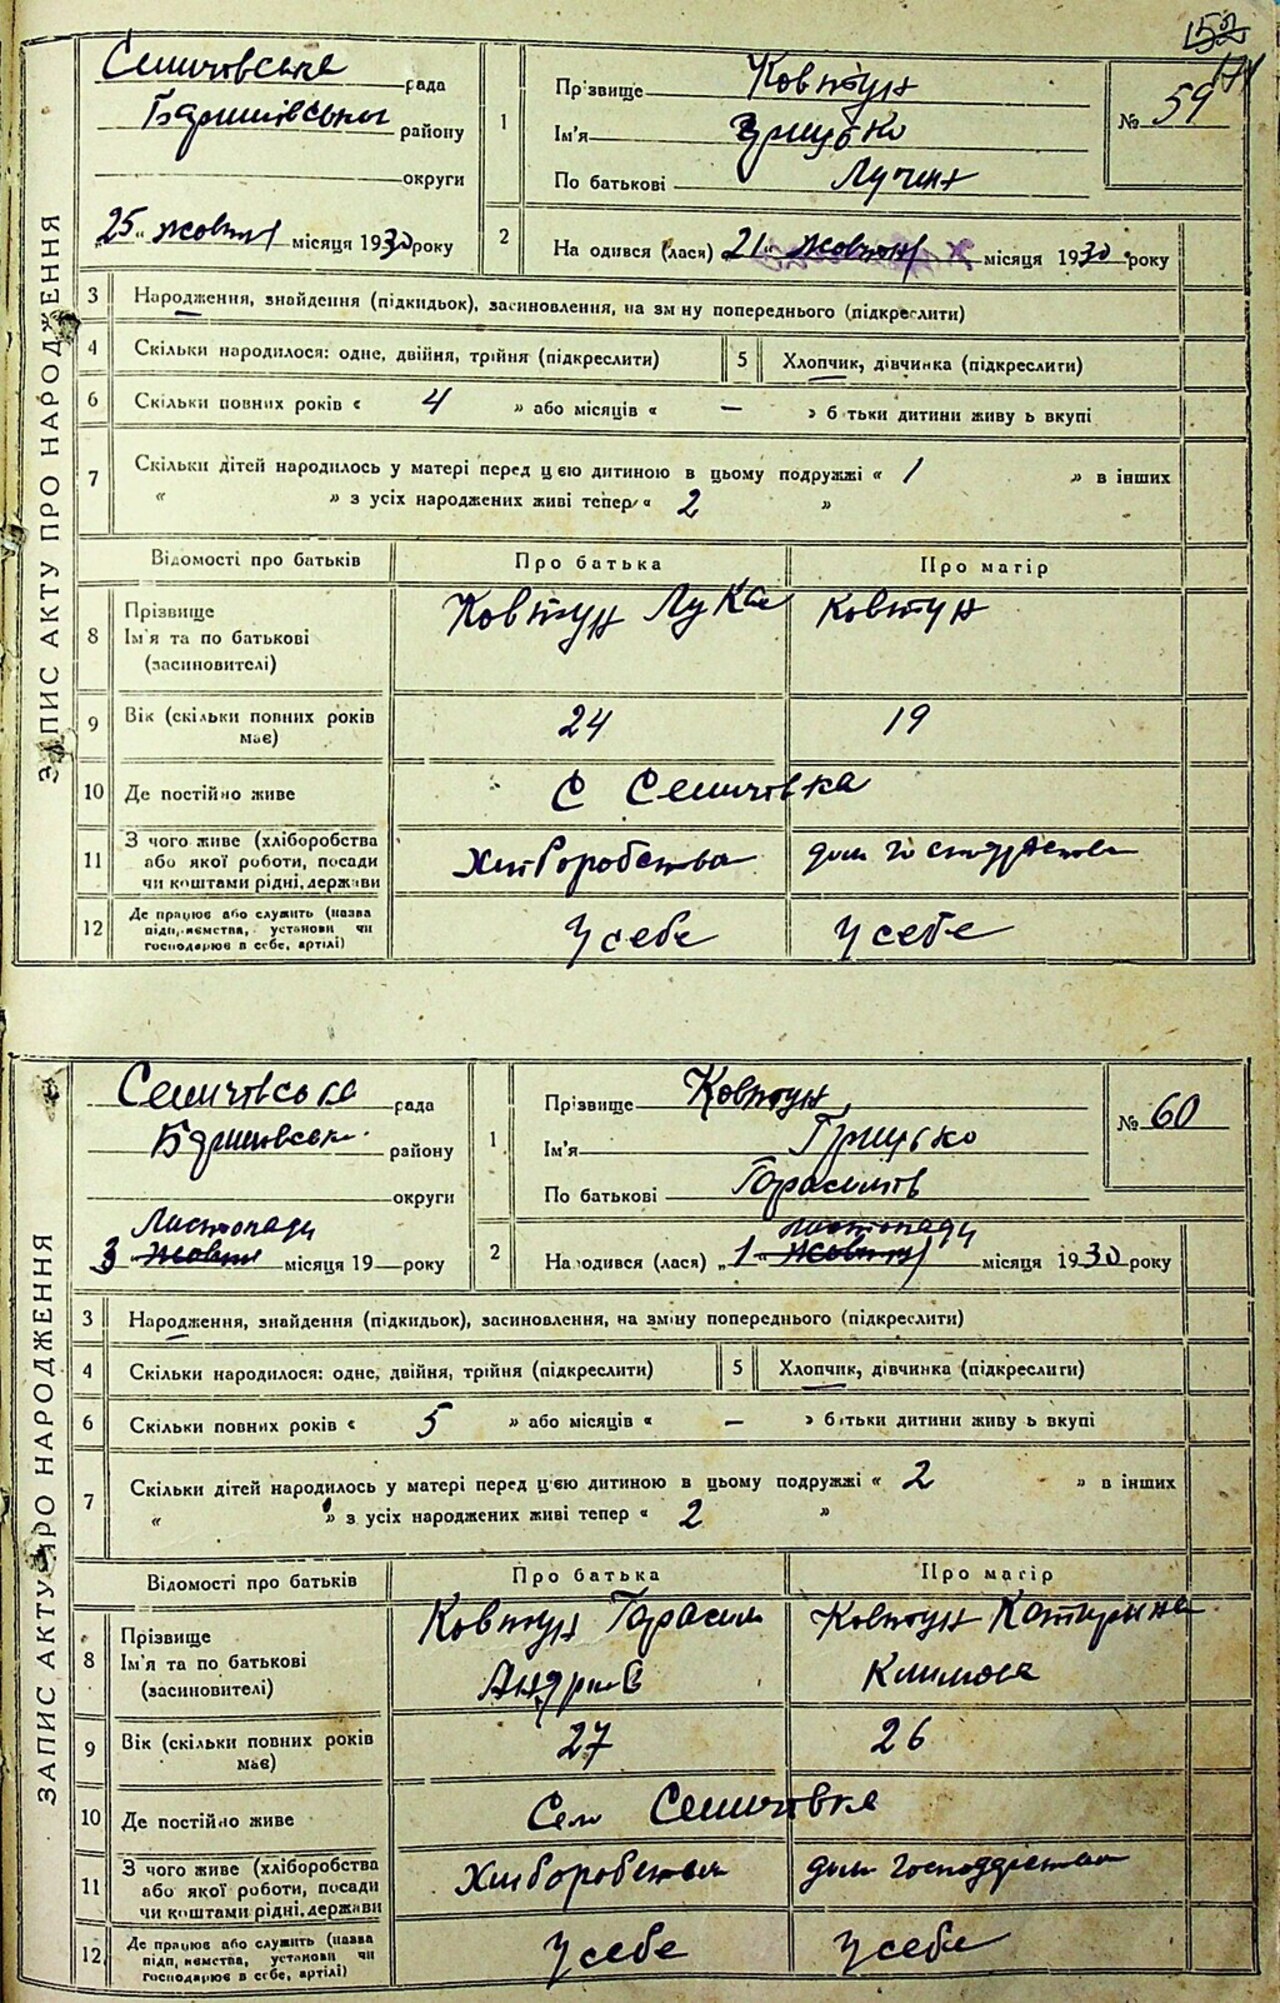 Селичівська рада
Баришівського району
округи
„25“ жовтня місяця 1930 року
1
Прізвище Ковтун
Ім'я Грицько
По батькові Лучин
№ 59
2
На одився (лася) „21“ жовтня місяця 1930 року
ЗАПИС АКТУ ПРО НАРОДЖЕННЯ
3 Народження, знайдення (підкидьок), засиновлення, на зм ну попереднього (підкреслити)
4 Скільки народилося: одне, двійня, трійня (підкреслити) 5 Хлопчик, дівчинка (підкреслити)
6 Скільки повних років « 4 » або місяців « — » б тьки дитини живу ь вкупі
7 Скільки дітей народилось у матері перед цією дитиною в цьому подружжі « 1 » в інших
« » з усіх народжених живі тепер « 2 »
Відомості про батьків Про батька Про матір
8 Прізвище Ім'я та по батькові (засиновителі) Ковтун Лука Ковтун
9 Вік (скільки повних років має) 24 19
10 Де постійно живе С Селичівка
11 З чого живе (хліборобства або якої роботи, посади чи коштами рідні, держави Хліборобства дом господарства
12 Де працює або служить (назва підп, иємства, установи чи господарює в себе, артілі) У себе У себе
Селичівська рада
Баришівськ району
округи
Листопада
3 жовтня місяця 19 року
1
Прізвище Ковтун
Ім'я Грицько
По батькові Гарасимів
№ 60
листопада
2
На одився (лася) „1“ жовтня місяця 1930 року
ЗАПИС АКТУ ПРО НАРОДЖЕННЯ
3 Народження, знайдення (підкидьок), засиновлення, на зміну попереднього (підкреслити)
4 Скільки народилося: одне, двійня, трійня (підкреслити) 5 Хлопчик, дівчинка (підкреслити)
6 Скільки повних років « 5 » або місяців « — » батьки дитини живу ь вкупі
7 Скільки дітей народилось у матері перед цією дитиною в цьому подружжі « 2 » в інших
« » з усіх народжених живі тепер « 2 »
Відомості про батьків Про батька Про матір
8 Прізвище Ім'я та по батькові (засиновителі) Ковтун Гарасим Андріів Ковтун Катерина Климова
9 Вік (скільки повних років має) 27 26
10 Де постійно живе Село Селичівка
11 З чого живе (хліборобства або якої роботи, посади чи коштами рідні, держави Хліборобства дом господарства
12 Де працює або служить (назва підп, иємства, установи чи господарює в себе, артілі) У себе У себе